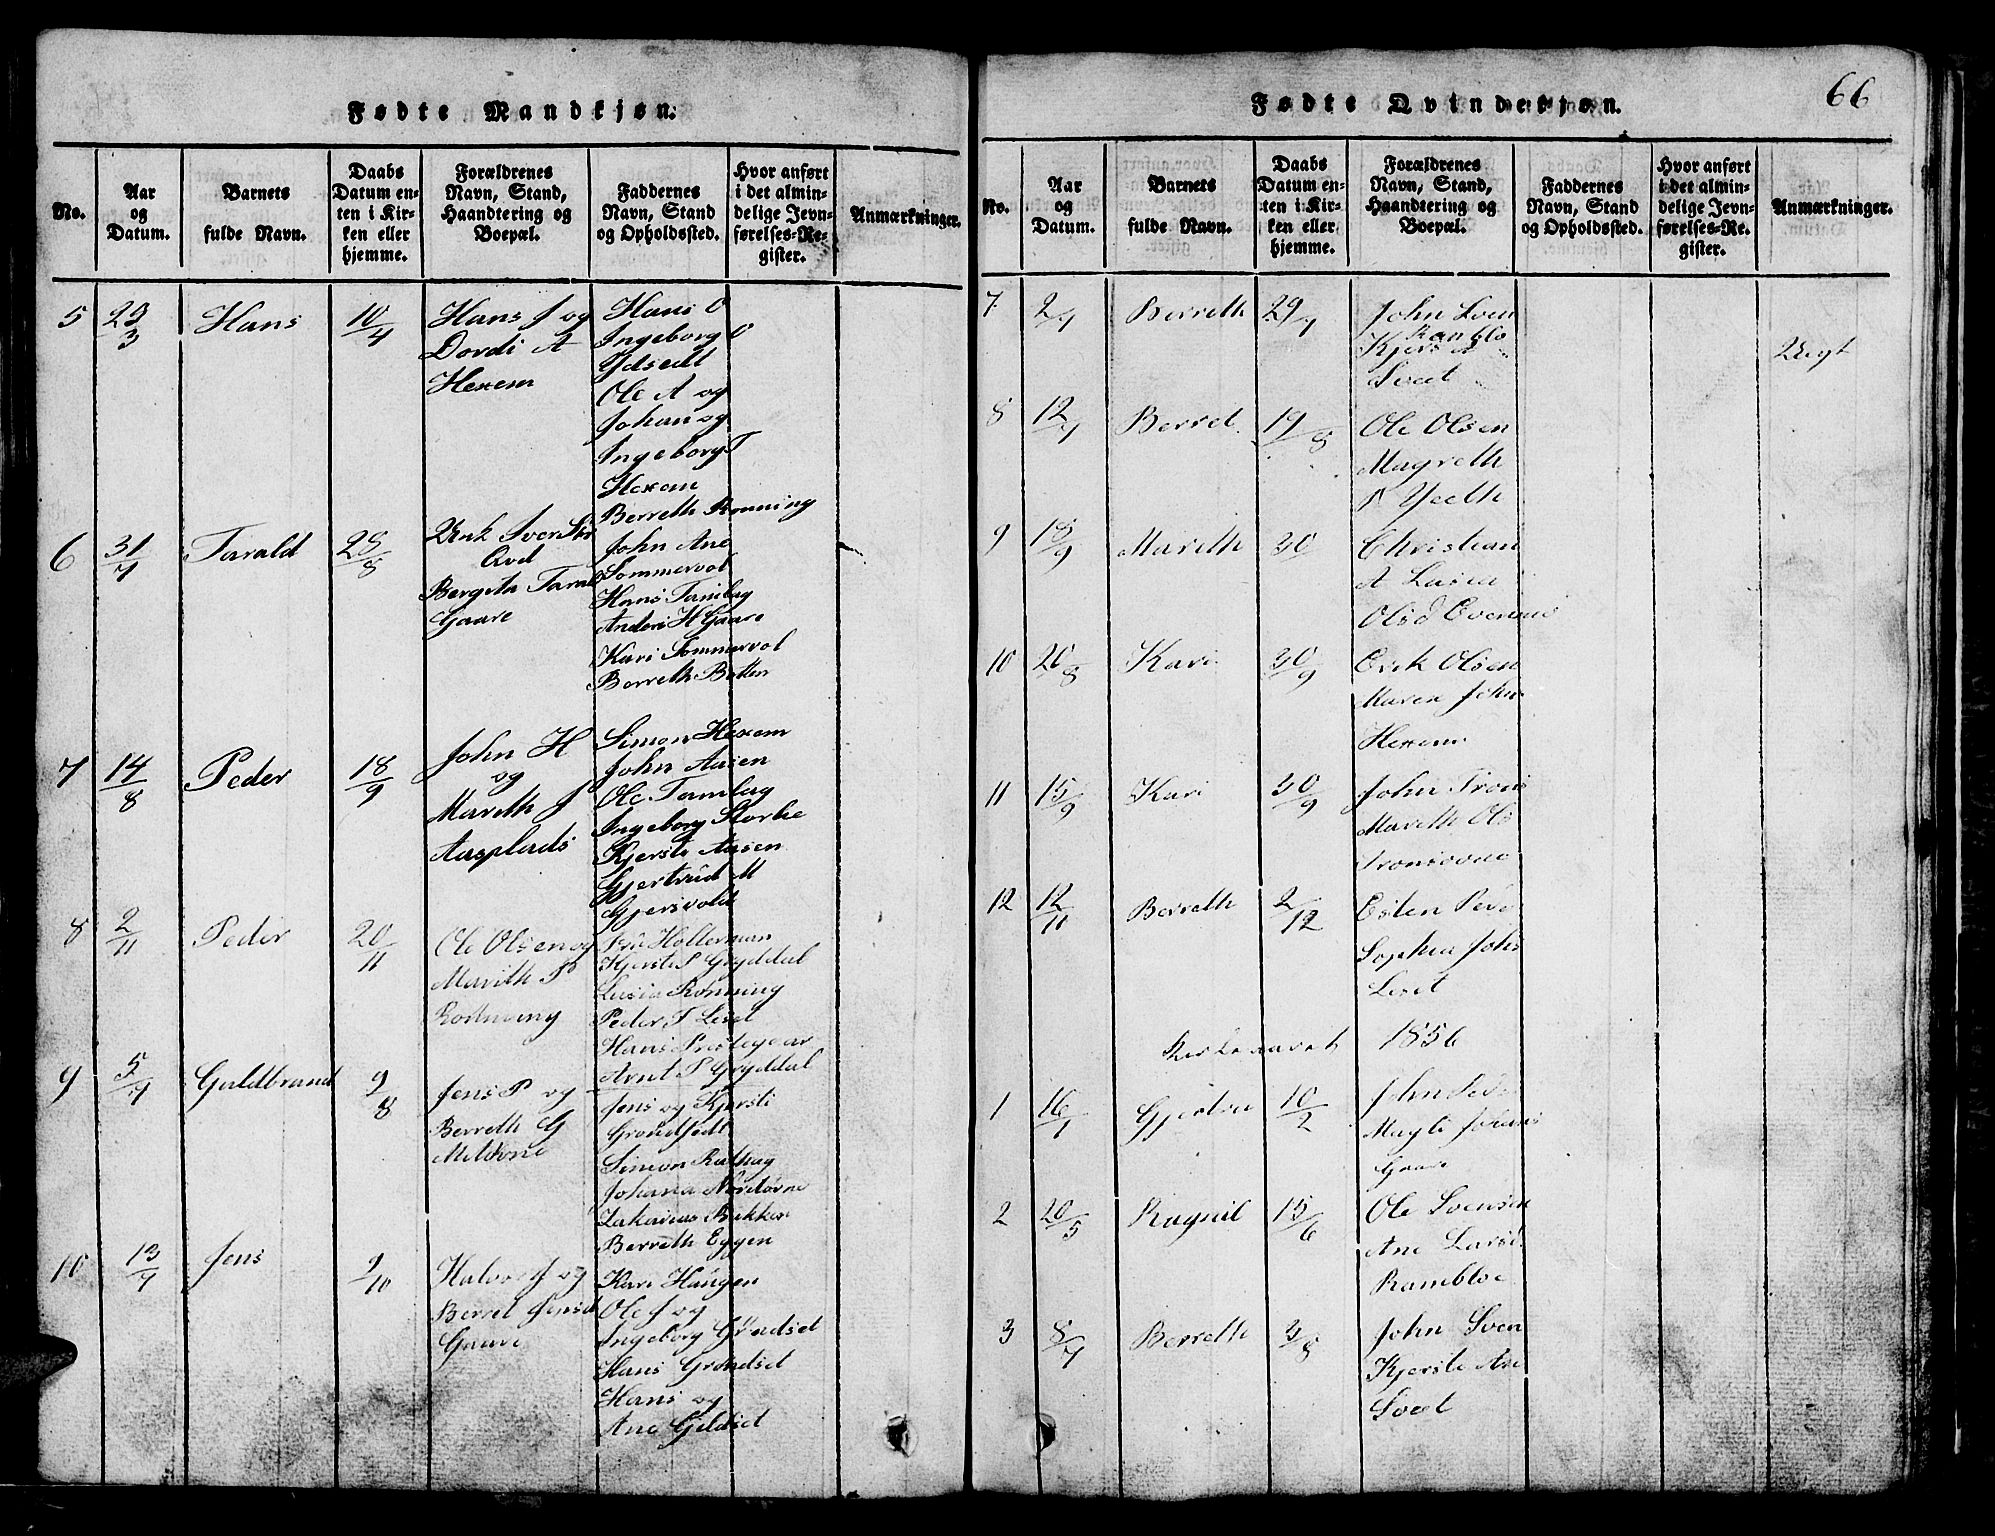 66
Fødte Mandkjøn.
No.
Aar
og
Datum.
Barnets
fulde Navn.
Daabs
Datum en-
ten i Kir-
ken eller
hjemme.
Forældrenes
Navn, Stand,
Haandtering og
Boepæl.
Faddernes
Navn, Stand
og Opholdssted.
Hvor anført
i det almin-
delige Jevn-
førelses-Re-
gister.
Anmærkninger.
5
29/3
Hans
10/4
Hans J og
Dordi A
Hexem
Hans O
Ingeborg O
Ydsedt
Ole A og
Johan og
Ingeborg T
Hexem
Berreth Ronning
6
31/7
Tarald
28/8
Bergita Tarald
Gaare
John Ane
Sommervol
Hans Tamlag
Anders H Gaare
Kari Sommervol
Berreth Botten
7
14/8
Peder
18/9
John H
og
Mareth J
Aasplads
Simon Hexem
John Aasen
Ole Tamlag
Ingeborg Storlie
Kjersti Aasen
Gjertrud M
Gjersvold
8
2/11
Peder
20/11
Ole Olsen og
Marith P
Hollerman
Kjersti P Gryddal
Lusia Ronning
Peder T Leset
Hans Prestegaar
9
5/7
Guldbrand
9/8
Jens P og
Berreth G
Arnt P Gryddal
Jens og Kjersti
Grondsedt
Simon Rathag
Johana
Zakarias Bakken
Berreth Eggen
10
13/7
Jens
9/10
Halvor J og
Berret Jensd
Gaare
Kari Haugen
Ole J og
Ingeborg Grondset
Hans Grondset
Hans og
Ane Gildset
Fødte Qvindekjøn.
No.
Aar
og
Datum.
Barnets
fulde Navn.
Daabs
Datum en-
ten i Kir-
ken eller
hjemme.
Forældrenes
Navn, Stand,
Haandtering og
Boepæl.
Faddernes
Navn, Stand
og Opholdssted.
Hvor anført
i det almin-
delige Jevn-
førelses-Re-
gister.
Anmærkninger.
7
2/7
Berreth
29/7
John Sven
Ramblo
Kjers A
Sveet
8
12/7
Berret
19/8
Ole Olsen
Magreth
9
18/9
Mareth
30
Christian
A Lasia
Olsd
10
20/8
Kari
30/9
Erik Olsen
Maren Johns
Hexem
11
15/9
Kari
30/9
John Trons
Mareth Ols
12
12/11
Berreth
2/12
Esten Peds
Sophia Johs
Leset
Kirkeaaret 1856
1
16/1
10/2
John Peds
Magli Johans
Gaare
2
20/5
Ragnil
15/6
Ole Svensen
Ane Larsd
Rambloe
3
8/7
Berreth
3/8
John Sven
Kjersti An
Sveet